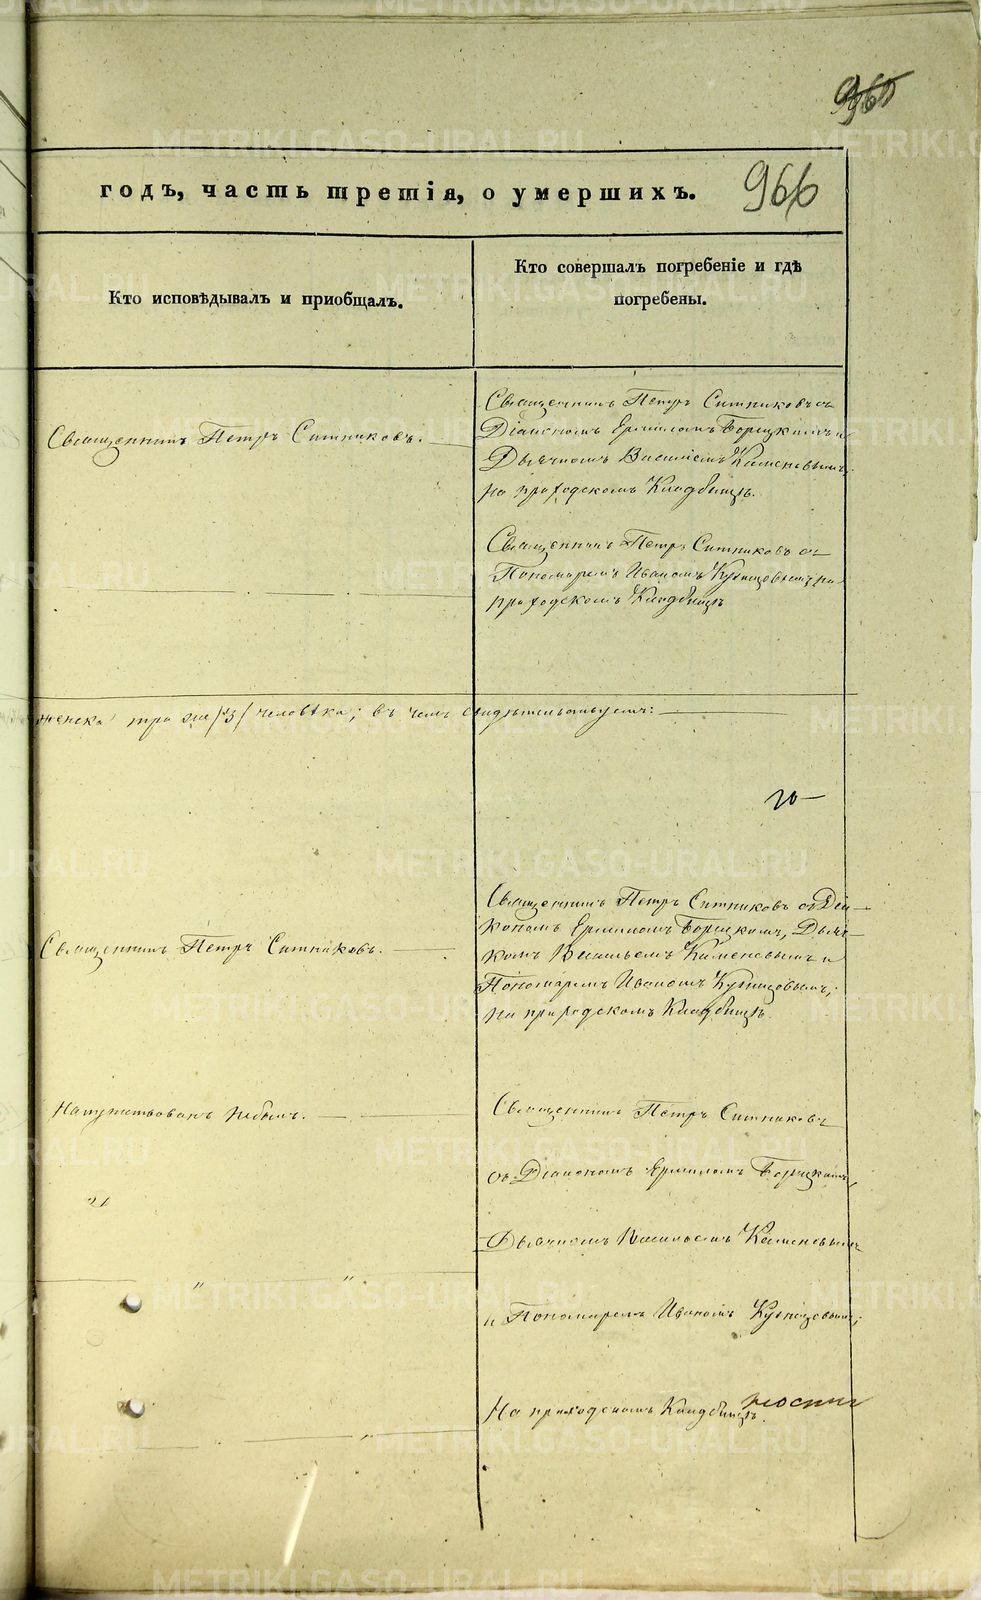 966
годъ, часть третія, о умершихъ.
Кто исповѣдывалъ и приобщалъ.
Кто совершалъ погребеніе и гдѣ
погребены.
Священникъ Петръ Ситниковъ.
Священникъ Петръ Ситниковъ съ
Діакономъ Ермиломъ Борецкимъ и
Дьячкомъ Василіемъ Каменевымъ,
на приходскомъ Кладбищѣ.
Священникъ Петръ Ситниковъ съ
Пономаремъ Иваномъ Кузнецовымъ на
приходскомъ Кладбищѣ
женска три же /3/ человѣка; въ чемъ свидѣтельствуемъ:
Священникъ Петръ Ситниковъ.
Священникъ Петръ Ситниковъ съ Діа-
кономъ Ермиломъ Борецкимъ, Дьяч-
комъ Васильемъ Каменевымъ и
Пономаремъ Иваномъ Кузнецовымъ;
на приходскомъ Кладбищѣ.
Напутствованъ не былъ.
Священникъ Петръ Ситниковъ
съ Діакономъ Ермиломъ Борецкимъ,
Дьячкомъ Васильемъ Каменевымъ
и Пономаремъ Иваномъ Кузнецовымъ;
На приходскомъ Кладбищѣ.
METRIKI.GASO-URAL.RU